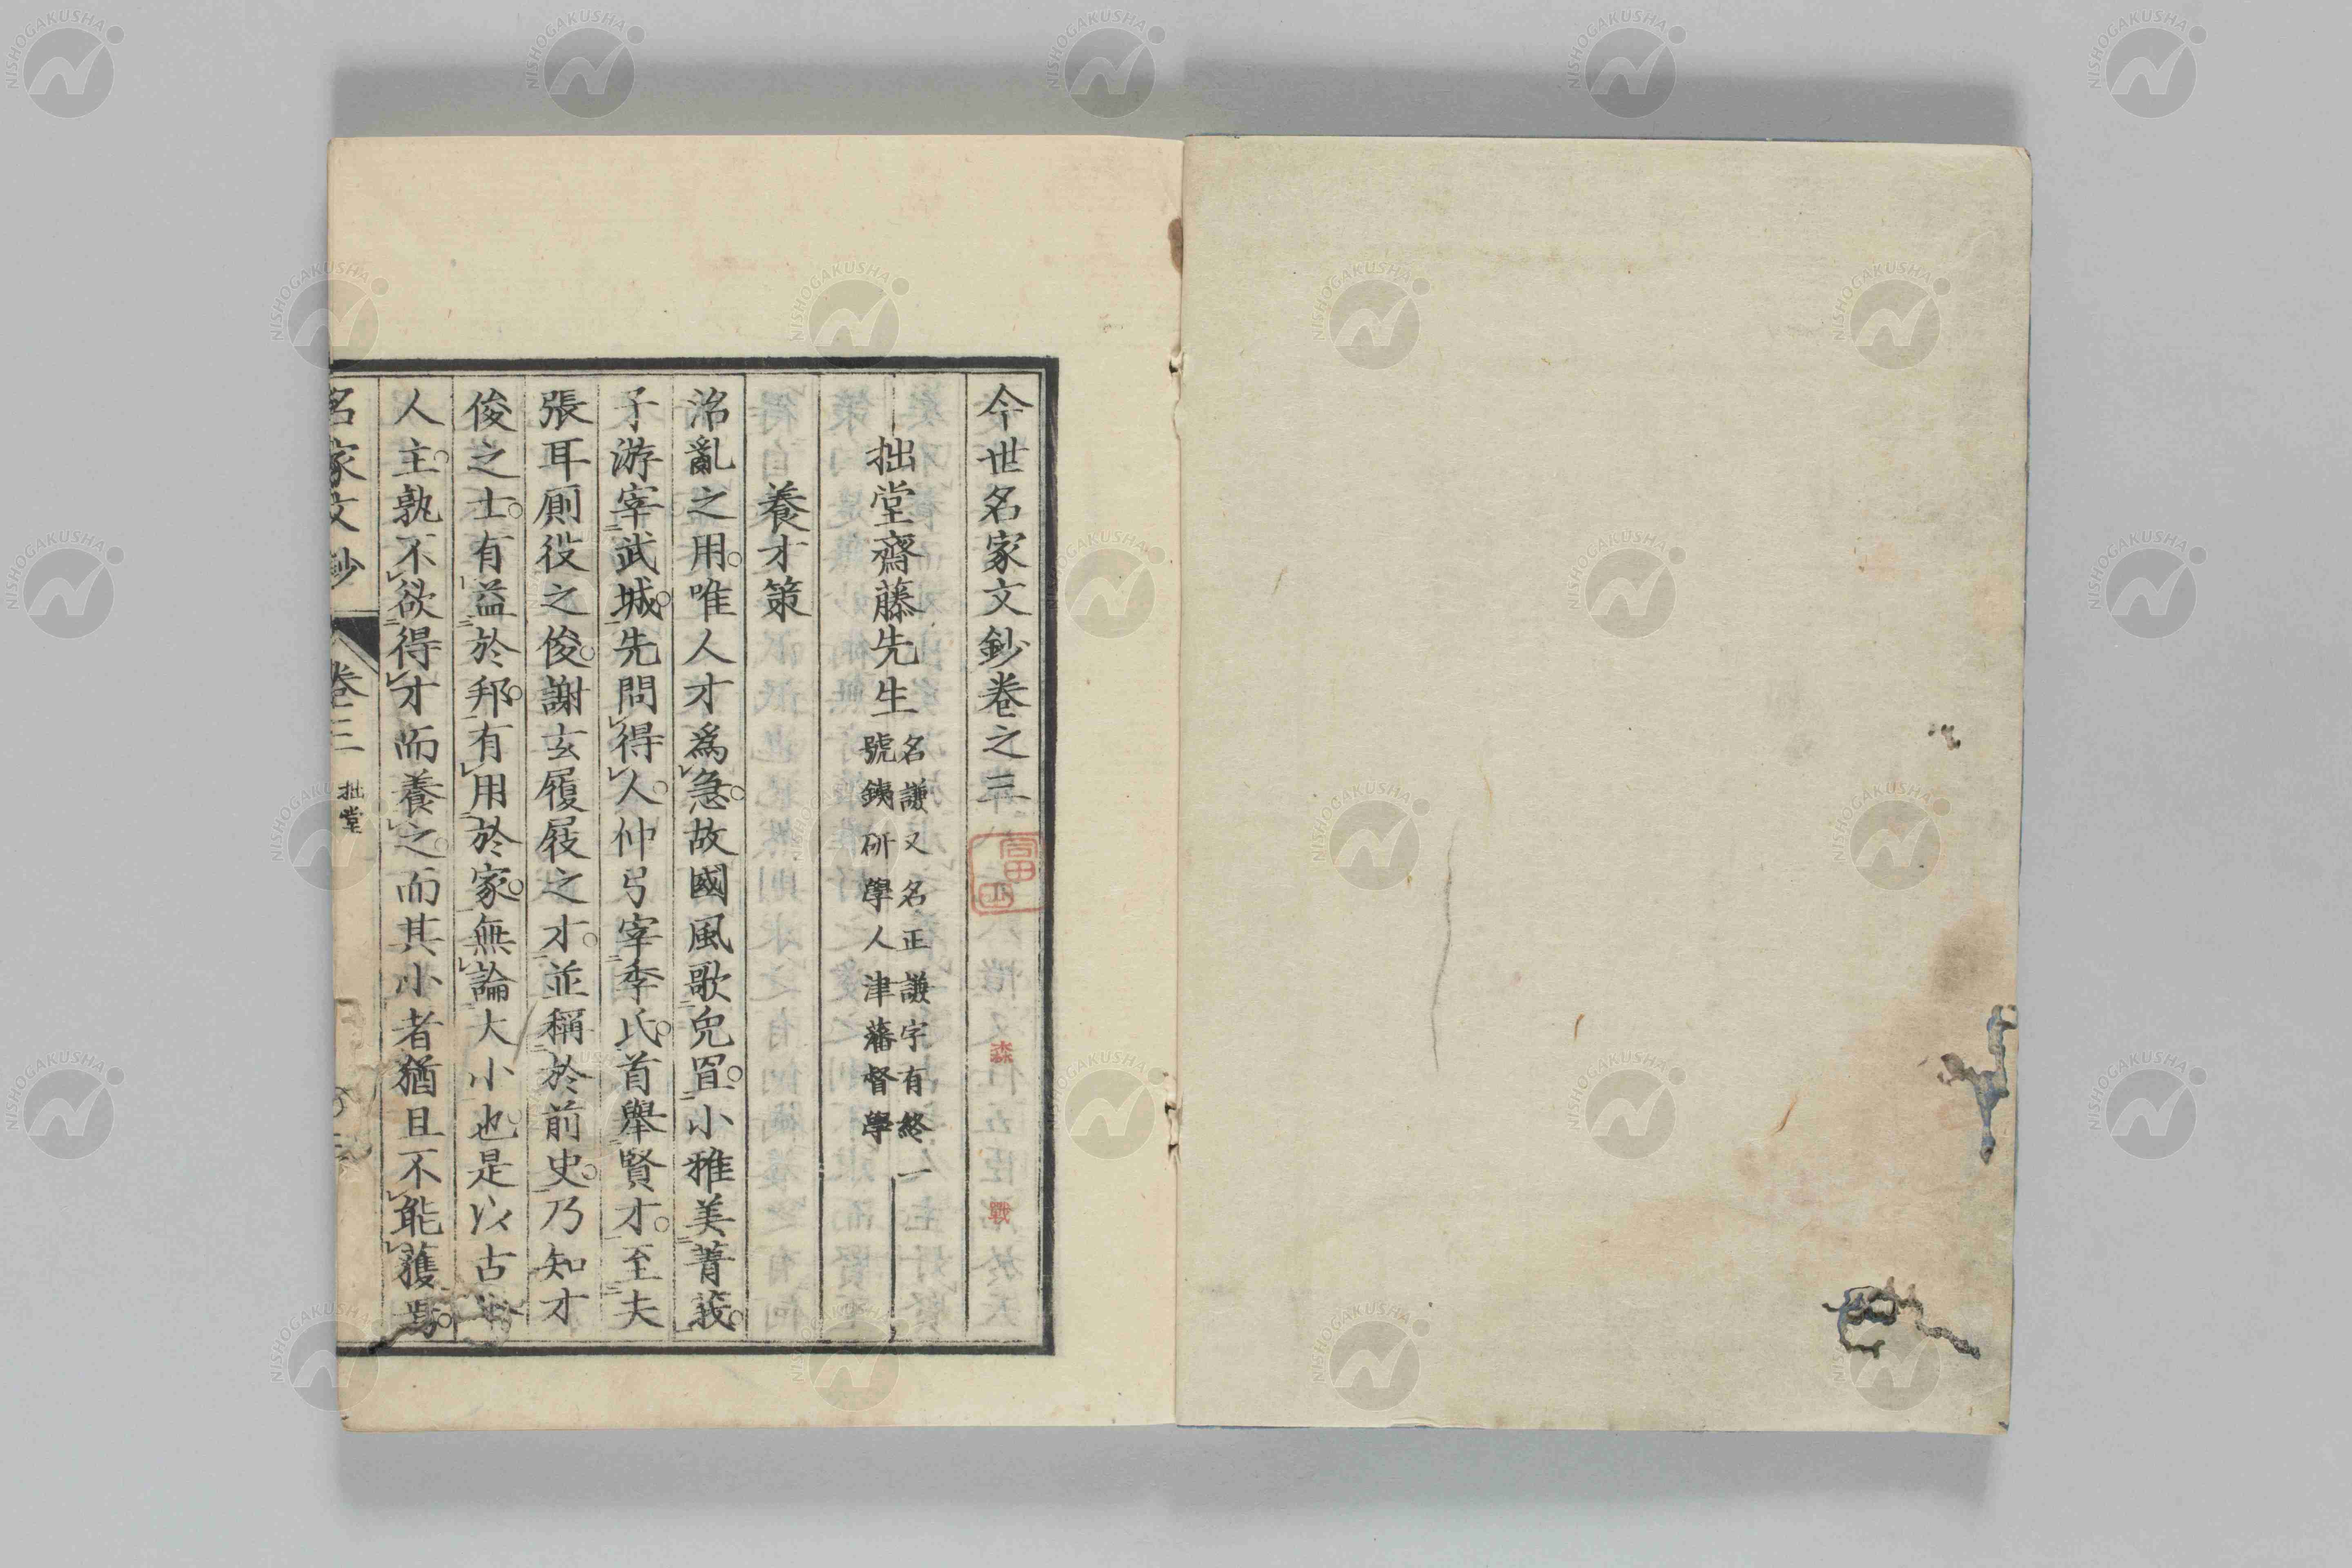 今世名家文鈔卷之三
拙堂齋藤先生
名謙又名正謙字有終一
號鐵研學人津藩督學
養才策
治亂之用唯人才爲急故國風歌兔罝小雅美菁莪
子游宰武城先問得人仲弓宰季氏首舉賢才至夫
張耳厠役之俊謝玄履屐之才並稱於前史乃知才
俊之士有益於邦有用於家無論大小也是以古
人主孰不欲得才而養之而其小者猶且不能獲焉
名家文鈔 卷三 拙堂
NISHOGAKUSHA